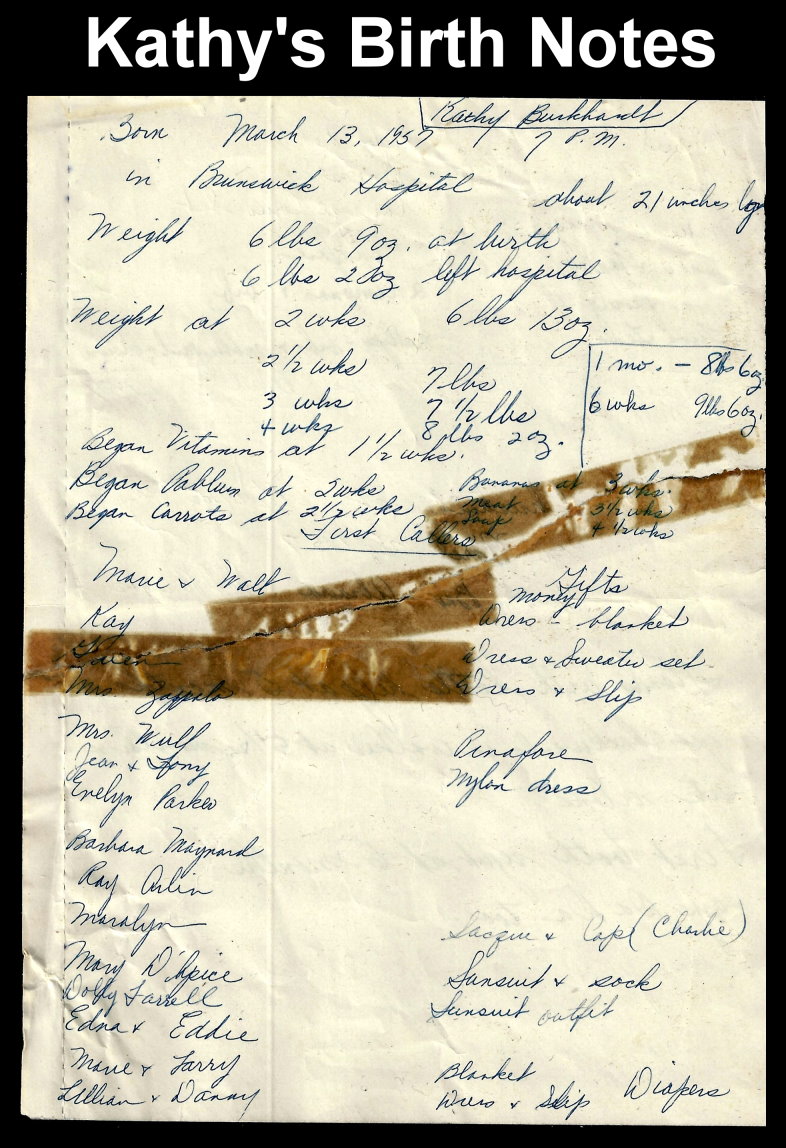 Kathy's Birth Notes
Kathy Burkhardt
Born March 13, 1957 7 P.M.
in Brunswick Hospital about 21 inches long
Weight 6 lbs 9 oz. at birth
6 lbs left hospital
Weight at 2 wks 6 lbs 13 oz.
2 1/2 wks 7 lbs
3 wks 7 1/2 lbs
4 wks 8 lbs 2 oz.
1 mo. - 8 lbs 6 oz
6 wks 9 lbs 6 oz.
Began Vitamins at 1 1/2 wks.
Began Pablum at 2 wks
Began Carrots at 2 1/2 wks
Bananas at 3 wks.
Meat 3 1/2 wks
Soup 4 1/2 wks
First Callers
Gifts
Marie & Walt money
Kay Dress - blanket
Dress & Sweater set
Mrs. Dress & Slip
Mrs. Wulf
Jean & Tony Pinafore
Evelyn Parker Nylon dress
Barbara Maynard
Ray Arlin
Maralyn Sacque & Cap (Charlie)
Mary Sunsuit & sock
Dolly Farrell Sunsuit outfit
Edna & Eddie
Marie & Larry Blanket
Lillian & Danny Dress & Slip Diapers